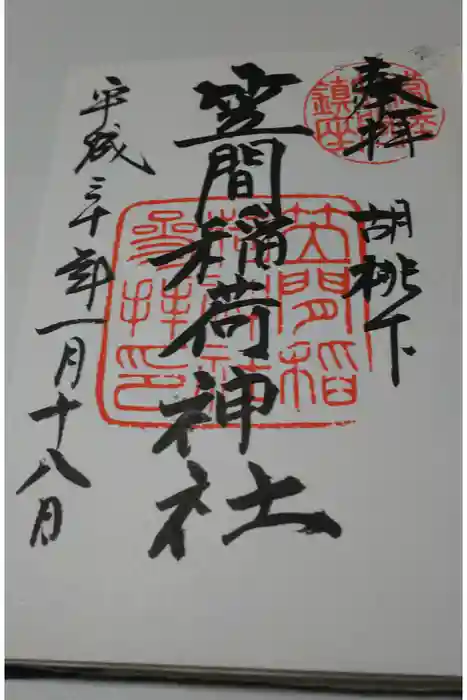 奉拝
胡桃下
笠間稲荷神社
平成三十年一月十八日
鎮座
笠間稲
参拝印